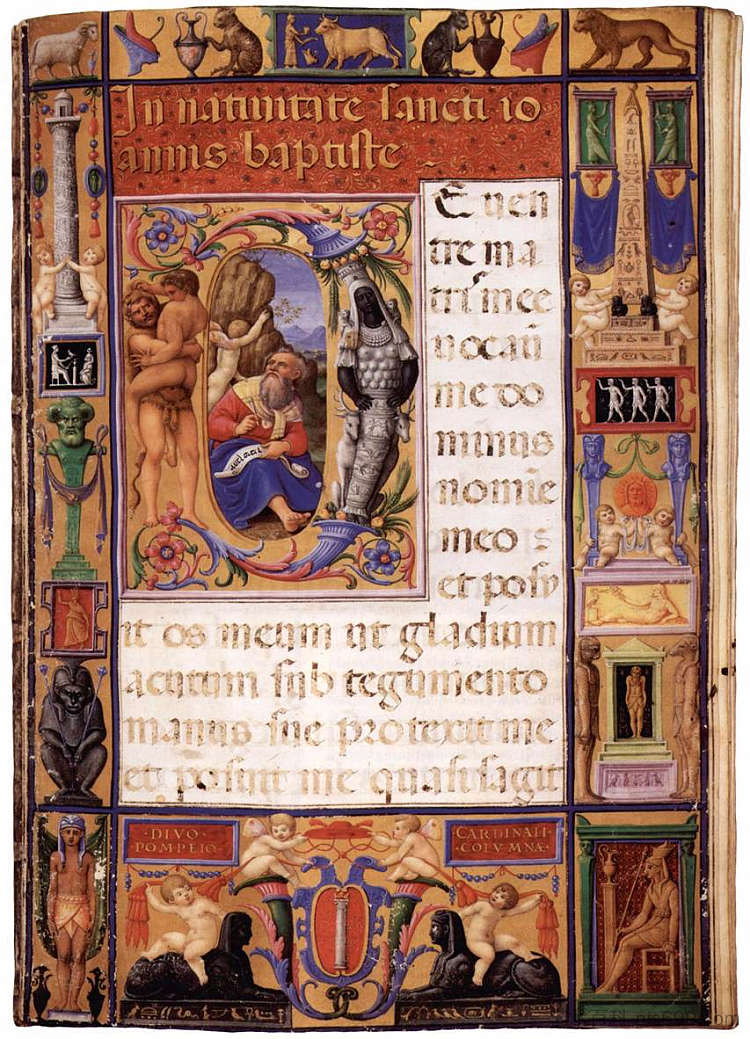 In natiuitate sancti io
annis baptiste
E uen
tre ma
tris mee
uocauit
me do
minus
nomine
meo :
et posu
it os meum ut gladium
acutum sub tegumento
manus sue protexit me
et posuit me quasi sagit
·DIVO·
POMPEIO·
CARDINALI·
COLVMNÆ·